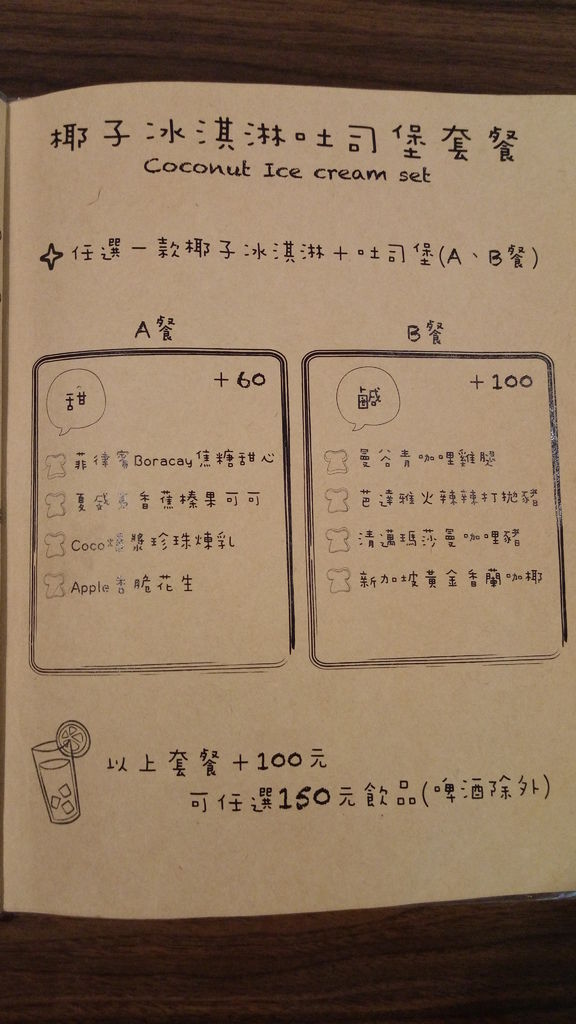 椰子冰淇淋吐司堡套餐
Coconut Ice cream set
任選一款椰子冰淇淋+吐司堡(A、B餐)
A餐
甜
+60
菲律賓Boracay焦糖甜心
夏威夷香蕉榛果可可
Coco爆漿珍珠煉乳
Apple香脆花生
B餐
鹹
+100
曼谷青咖哩雞腿
芭達雅火辣辣打拋豬
清邁瑪莎曼咖哩豬
新加坡黃金香蘭咖椰
以上套餐+100元
可任選150元飲品(啤酒除外)